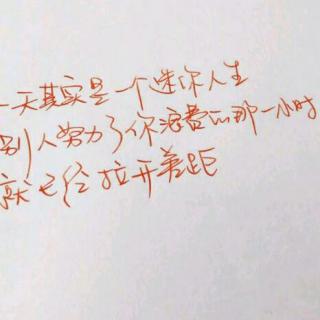 一天其实是一个迷你人生
别人努力了你浪费的那一小时
就已经拉开差距